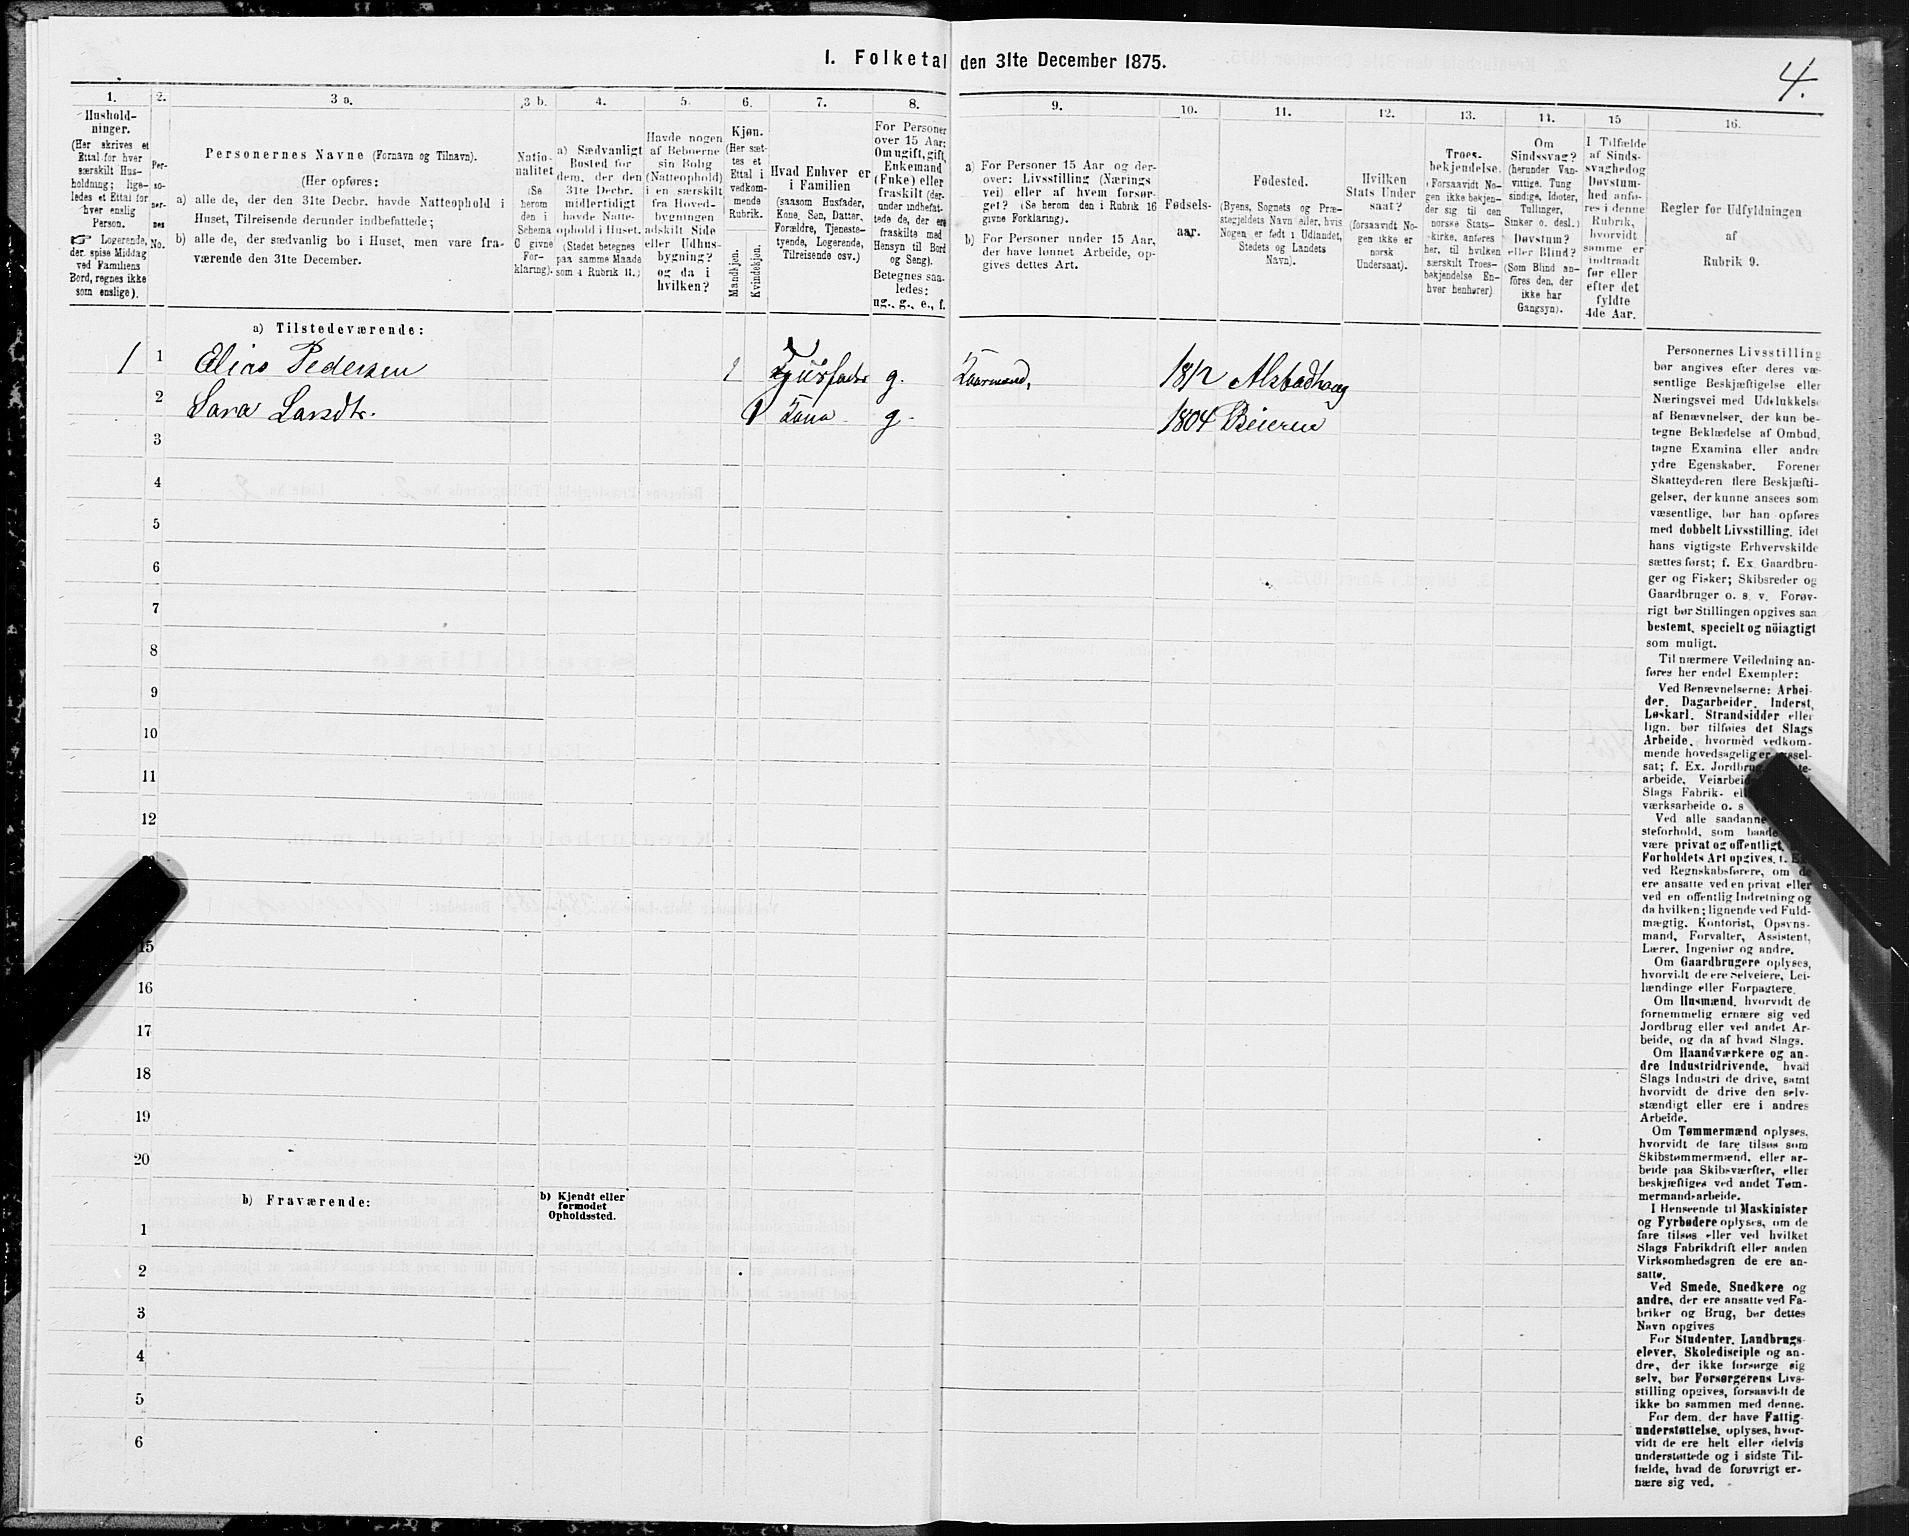 I. Folketal den 31te December 1875.
4.
1.
Husholdninger.
(Her skrives et
Ettal for hver
særskilt Husholdning;
ligeledes et Ettal for
hver enslig
Person.
☞ Logerende,
der spise Middag
ved Familiens
Bord, regnes ikke
som enslige).
2.
Personernes
No.
3 a.
Personernes Navne (Fornavn og Tilnavn).
(Her opføres:
a) alle de, der den 31te Decbr. havde Natteophold i
Huset, Tilreisende derunder indbefattede;
b) alle de, der sædvanlig bo i Huset, men vare fraværende
den 31te December.
3 b.
Nationalitet
(Se
herom
den i
Schema
C givne
Forklaring).
4.
a) Sædvanligt
Bosted for
dem, der den
31te Decbr.
midlertidigt
havde Natteophold
i Huset.
(Stedet betegnes
paa samme Maade
som i Rubrik 11.)
5.
Havde nogen
af Beboerne
sin Bolig
(Natteophold)
i en særskilt
fra Hovedbygningen
adskilt Side
eller Udhusbygning?
og da i
hvilken?
6.
Kjøn.
(Her sættes
et
Ettal i
vedkommende
Rubrik.
Mandkjøn.
Kvindekjøn.
7.
Hvad Enhver er
i Familien
(saasom Husfader,
Kone, Søn, Datter,
Forældre, Tjenestetyende,
Logerende,
Tilreisende osv.)
8.
For Personer
over 15 Aar:
Om ugift, gift,
Enkemand
(Enke) eller
fraskilt (derunder
indbefattede
de, der ere
fraskilte med
Hensyn til Bord
og Seng).
Betegnes saaledes:
ug., g., e., f.
9.
a) For Personer 15 Aar og derover:
Livsstilling (Næringsvei)
eller af hvem forsørget?
(Se herom den i Rubrik 16
givne Forklaring).
b) For Personer under 15 Aar,
der have lønnet Arbeide, opgives
dettes Art.
10.
Fødselsaar.
11.
Fødested.
(Byens, Sognets og Præstegjeldets
Navn eller, hvis
Nogen er født i Udlandet,
Stedets og Landets
Navn).
12.
Hvilken
Stats Undersaat?
(forsaavidt Nogen
ikke er
norsk
Undersaat).
13.
Troesbekjendelse.
(Forsaavidt Nogen
ikke bekjender
sig til den
norske Statskirke,
anføres
her, til hvilken
særskilt Troesbekjendelse
Enhver
henhører)
14.
Om
Sindssvag?
(herunder Vanvittige,
Tungsindige,
Idioter,
Tullinger,
Sinker o. desl.)
Døvstum?
eller Blind?
(Som Blind anføres
den, der
ikke har
Gangsyn).
15
I Tilfælde
af Sindssvaghed
og
Døvstumhed
anføres
i denne
Rubrik,
hvorvidt
samme er
indtraadt
før eller
efter det
fyldte
4de Aar.
16.
Regler for Udfyldningen
af
Rubrik 9.
a) Tilstedeværende:
1 1 Elias Pedersen 1 Husfader g. 1812 Alstadhaug
2 Sara Larsdtr. 1 Kone g. 1804 Beieren
3
4
5
6
7
8
9
10
11
12
15
16
17
18
19
20
b) Fraværende:
b) Kjendt eller
formodet
Opholdssted.
1
2
3
4
5
6
Personernes Livsstilling
bør angives efter deres væsentlige
Beskjæftigelse eller
Næringsvei med Udelukkelse
af Benævnelser, der kun betegne
Beklædelse af Ombud,
tagne Examina eller andre
ydre Egenskaber. Forener
Skatteyderen flere Beskjæftigelser,
der kunne ansees som
væsentlige, bør han opføres
med dobbelt Livsstilling, idet
hans vigtigste Erhvervskilde
sættes først; f. Ex. Gaardbruger
og Fisker; Skibsreder og
Gaardbruger o. s. v. Forøvrigt
bør Stillingen opgives saa
bestemt, specielt og nöiagtigt
som muligt.
Til nærmere Veiledning anføres
her endel Exempler:
Ved Benævnelserne: Arbeider,
Dagarbeider, Inderst,
Løskarl, Strandsidder eller
lign. bør tilføies det Slags
Arbeide, hvormed vedkommende
hovedsagelig er
sat; f. Ex.
arbeide,
Slags Fabrik-
værksarbeide o. s
Ved alle saadanne
steforhold, som baade
være privat og offentligt,
Forholdets Art opgives,
ved Regnskabsførere, om de
ere ansatte ved en privat eller
ved en offentlig Indretning og
da hvilken; lignende ved Fuldmægtig,
Kontorist, Opsynsmand,
Forvalter, Assistent,
Lærer, Ingeniør og andre.
Om Gaardbrugere oplyses,
hvorvidt de ere Selveiere, Leilændinge
eller Forpagtere.
Om Husmænd, hvorvidt de
fornemmelig ernære sig ved
Jordbrug eller ved andet Arbeide,
og da af hvad Slags.
Om Haandværkere og andre
Industridrivende, hvad
Slags Industri de drive, samt
hvorvidt de drive den selvstændigt
eller ere i andres
Arbeide.
Om Tømmermænd oplyses,
hvorvidt de fare tilsøs som
Skibstømmermænd, eller arbeide
paa Skibsværfter, eller
beskjæftiges ved andet Tømmermandsarbeide.
I Henseende til Maskinister
og Fyrbødere oplyses, om de
fare tilsøs eller ved hvilket
Slags Fabrikdrift eller anden
Virksomhedsgren de ere ansatte.
Ved Smede, Snedkere og
andre, der ere ansatte ved Fabriker
og Brug, bør dettes
Navn opgives
For Studenter, Landbrugselever,
Skoledisciple og andre,
der ikke forsørge sig
selv, bør Forsørgerens Livsstilling
opgives, forsaavidt de
ikke bo sammen med denne.
For dem, der have Fattigunderstøttelse,
oplyses, hvorvidt
de ere helt eller delvis
understøttede og i sidste Tilfælde,
hvad de forøvrigt ernære
sig ved.